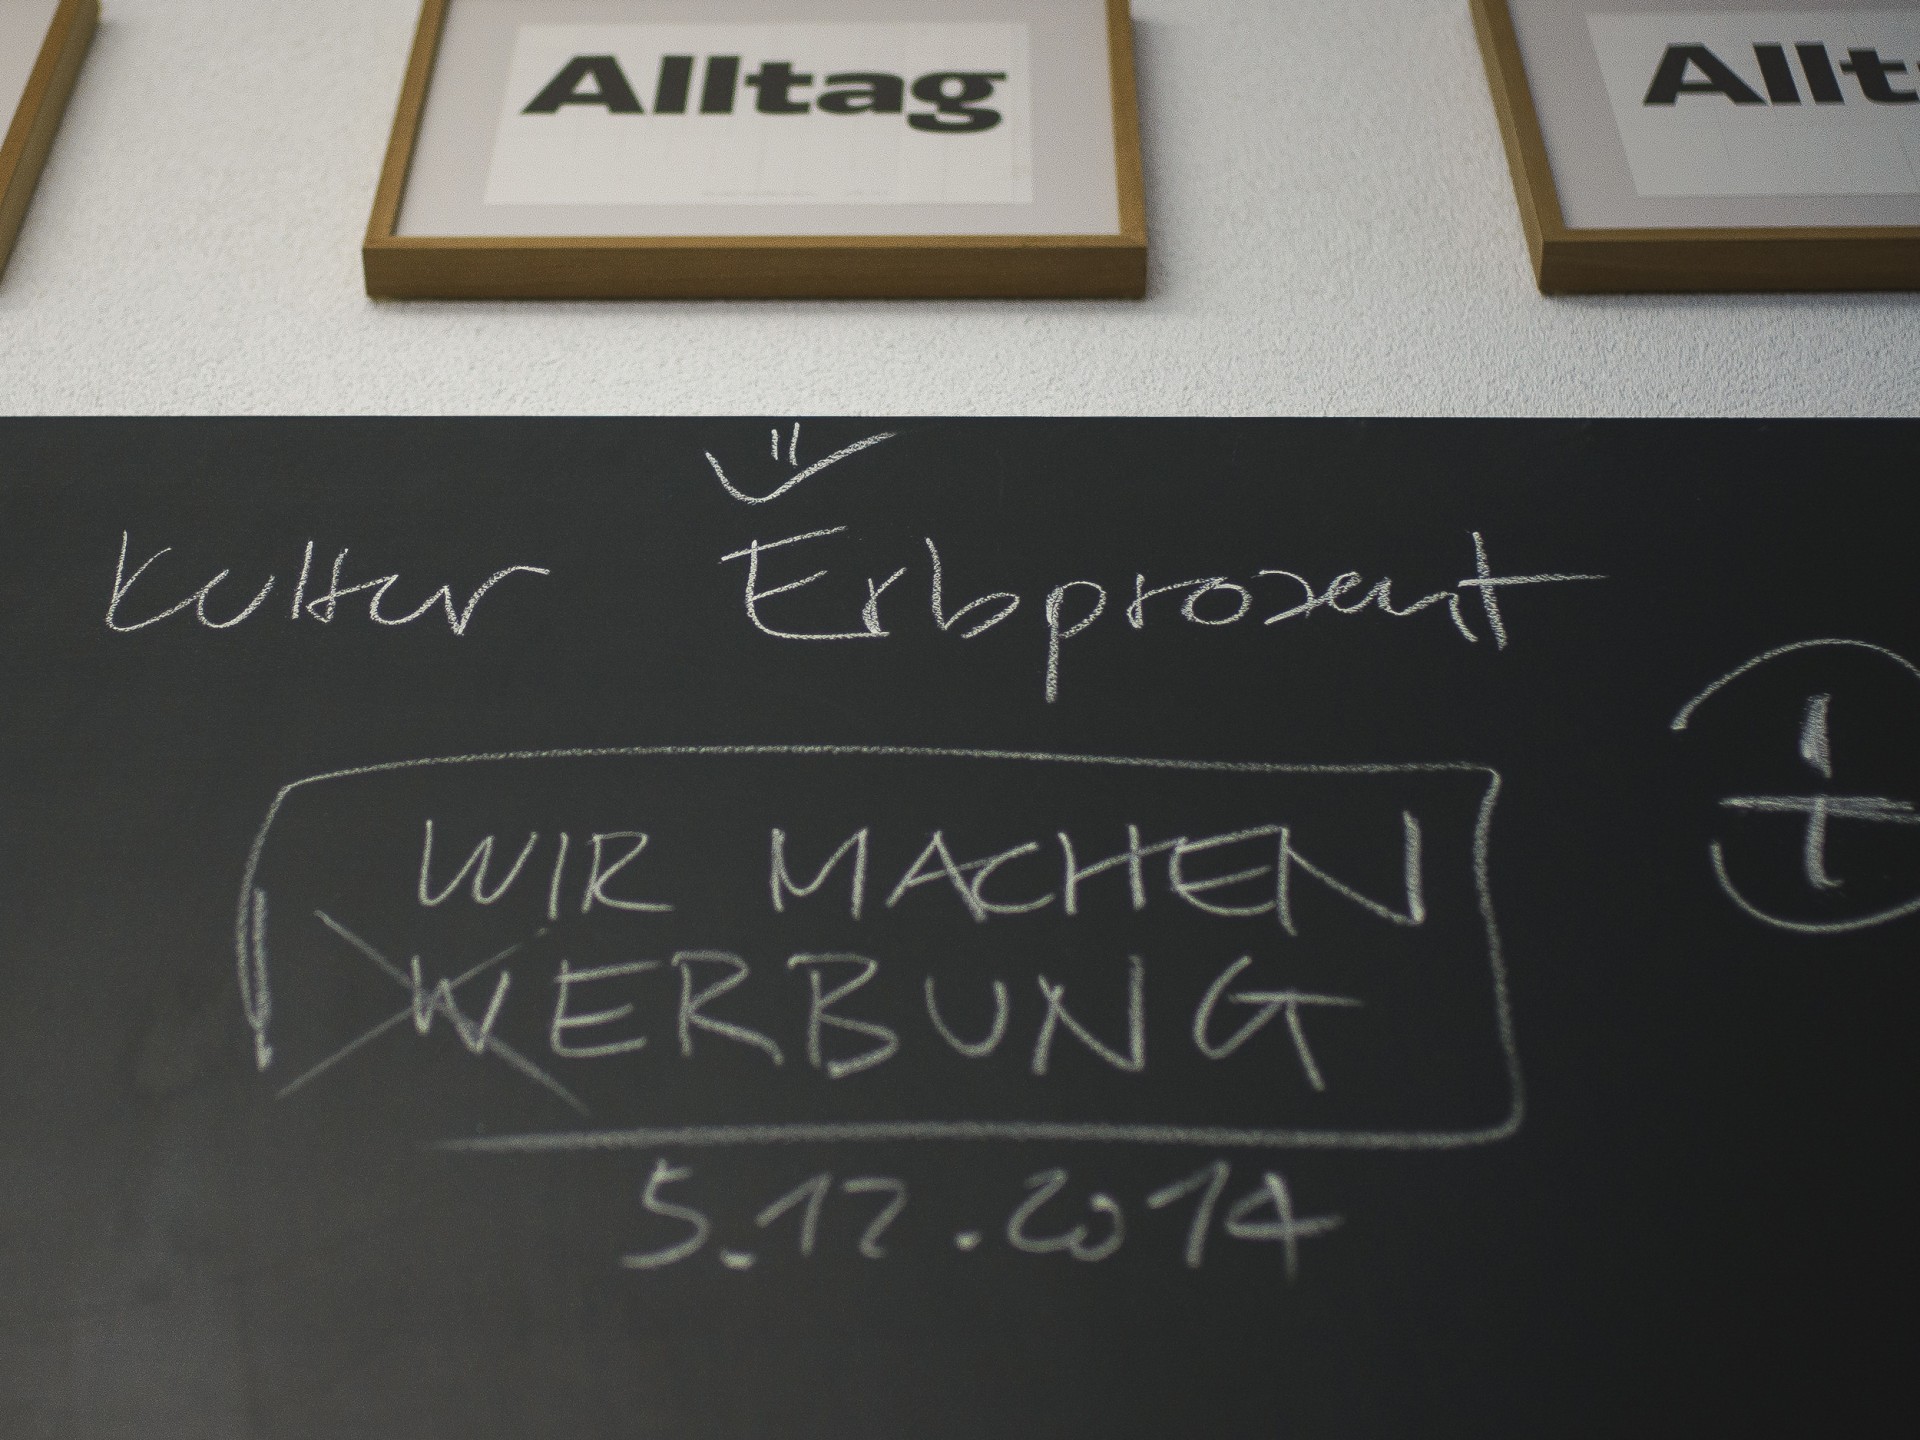 Alltag
Allt
Kultur Erbprozent
WIR MACHEN
WERBUNG
5.12.2014